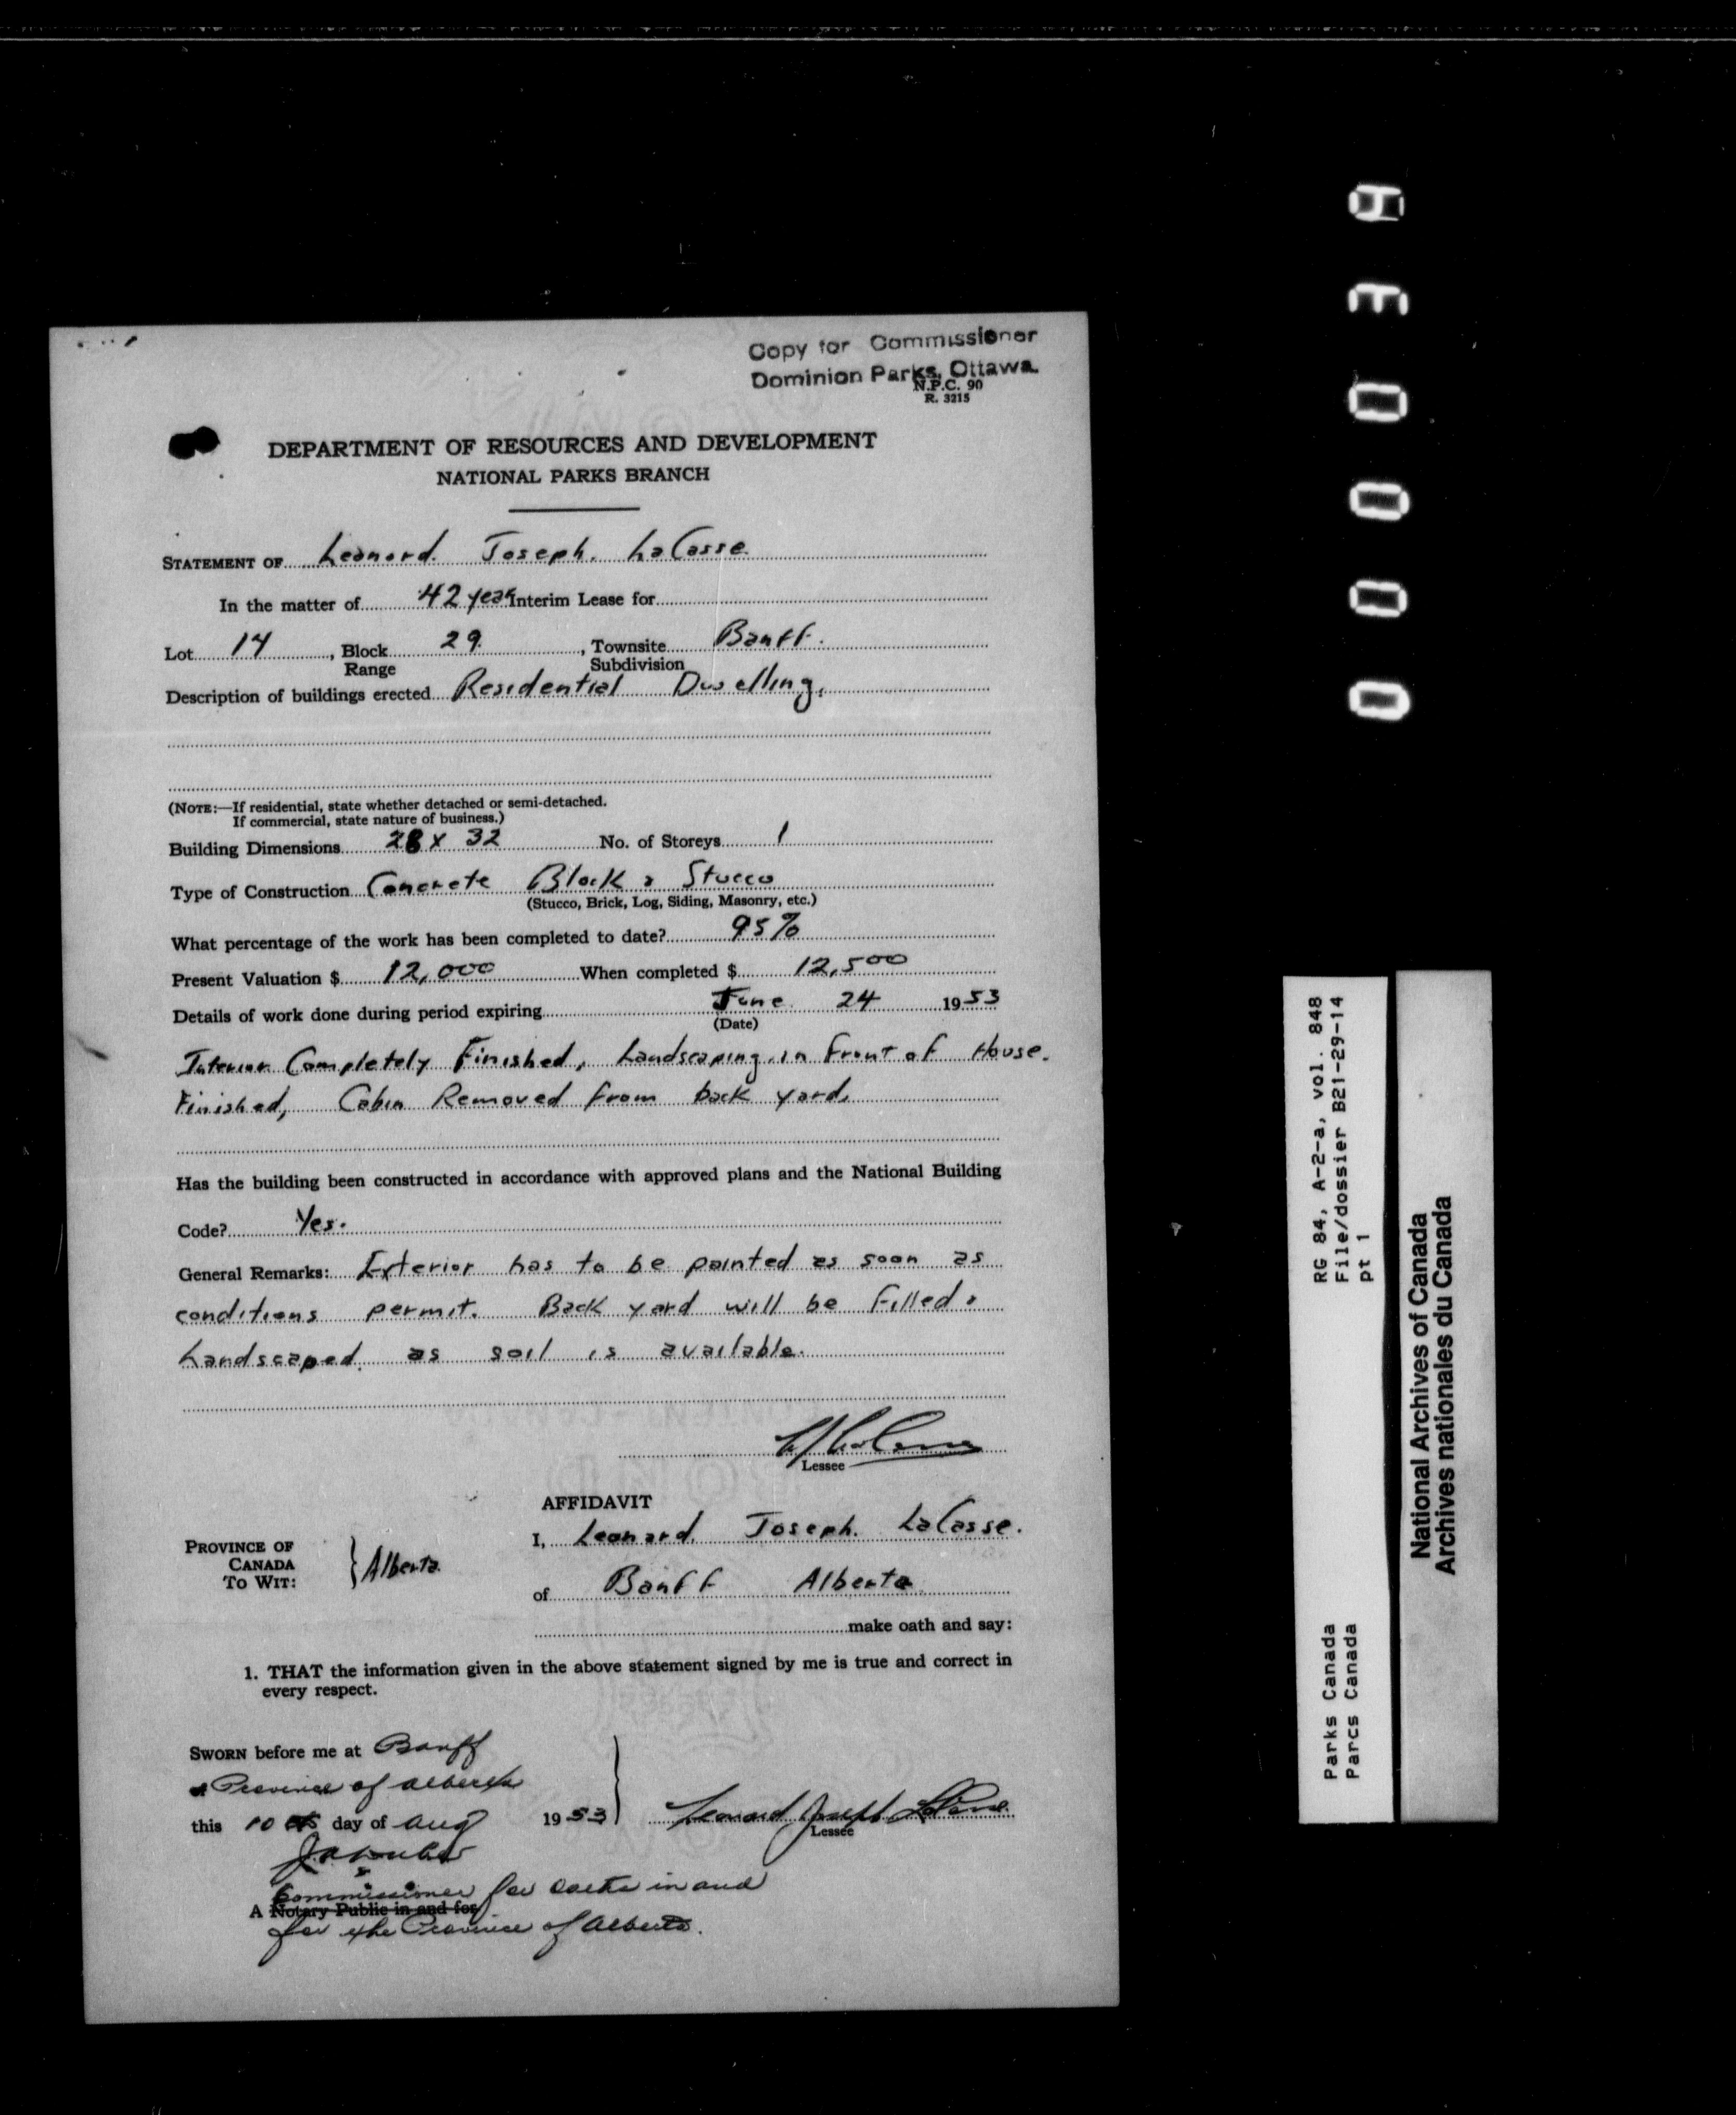 Copy for Commissioner
Dominion Parks, Ottawa.
N.P.C. 90
R. 3215
DEPARTMENT OF RESOURCES AND DEVELOPMENT
NATIONAL PARKS BRANCH
STATEMENT OF Leonard. Joseph. LaCasse.
In the matter of 42 year Interim Lease for
Lot 14, Block 29., Townsite Banff.
Range Subdivision
Description of buildings erected Residential Dwelling.
(NOTE:—If residential, state whether detached or semi-detached.
If commercial, state nature of business.)
Building Dimensions 28 x 32 No. of Storeys 1
Type of Construction Concrete Block & Stucco
(Stucco, Brick, Log, Siding, Masonry, etc.)
What percentage of the work has been completed to date? 95%
Present Valuation $ 12,000 When completed $ 12,500
Details of work done during period expiring June 24 1953
(Date)
Interior Completely Finished, Landscaping in front of House.
Finished, Cabin Removed from back yard.
Has the building been constructed in accordance with approved plans and the National Building
Code? Yes.
General Remarks: Exterior has to be painted as soon as
conditions permit. Back yard will be filled &
Landscaped as soil is available.
Lessee
AFFIDAVIT
PROVINCE OF
CANADA
TO WIT:
} Alberta.
I, Leonard. Joseph. LaCasse.
of Banff Alberta
make oath and say:
1. THAT the information given in the above statement signed by me is true and correct in
every respect.
SWORN before me at Banff
Province of Alberta
this 10 day of Aug 1953 } Leonard Joseph LaCasse
Lessee
Commissioner for oaths in and
A Notary Public in and for
for the Province of Alberta.
H E 0 0 0 0
RG 84, A-2-a, vol. 848
File/dossier B21-29-14
pt 1
Parks Canada
Parcs Canada
National Archives of Canada
Archives nationales du Canada